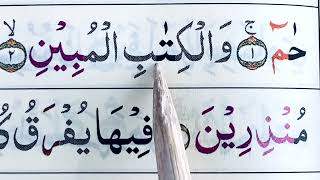 حٰمٓ ۚ ۝١ وَالْكِتٰبِ الْمُبِيْنِ ۙ ۝٢
مُنْذِرِيْنَ فِيْهَا يُفْرَقُ